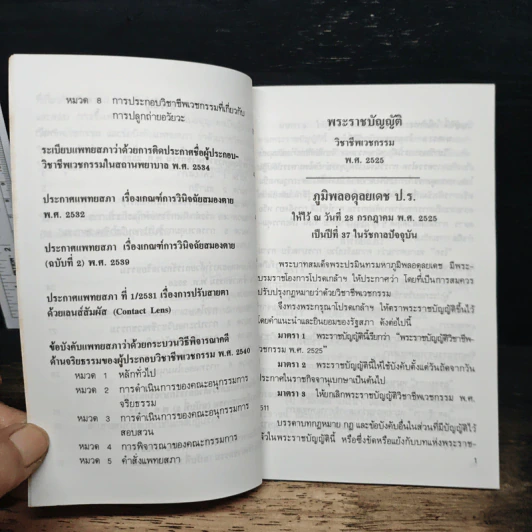 หมวด 8 การประกอบวิชาชีพเวชกรรมที่เกี่ยวกับ
การปลูกถ่ายอวัยวะ
ระเบียบแพทยสภาว่าด้วยการติดประกาศชื่อผู้ประกอบ-
วิชาชีพเวชกรรมในสถานพยาบาล พ.ศ. 2534
ประกาศแพทยสภา เรื่องเกณฑ์การวินิจฉัยสมองตาย
พ.ศ. 2532
ประกาศแพทยสภา เรื่องเกณฑ์การวินิจฉัยสมองตาย
(ฉบับที่ 2) พ.ศ. 2539
ประกาศแพทยสภา ที่ 1/2531 เรื่องการปรับสายตา
ด้วยเลนส์สัมผัส (Contact Lens)
ข้อบังคับแพทยสภาว่าด้วยกระบวนวิธีพิจารณาคดี
ด้านจริยธรรมของผู้ประกอบวิชาชีพเวชกรรม พ.ศ. 2540
หมวด 1 หลักทั่วไป
หมวด 2 การดำเนินการของคณะอนุกรรมการ
จริยธรรม
หมวด 3 การดำเนินการของคณะอนุกรรมการ
สอบสวน
หมวด 4 การพิจารณาของคณะกรรมการ
หมวด 5 คำสั่งแพทยสภา
พระราชบัญญัติ
วิชาชีพเวชกรรม
พ.ศ. 2525
ภูมิพลอดุลยเดช ป.ร.
ให้ไว้ ณ วันที่ 28 กรกฎาคม พ.ศ. 2525
เป็นปีที่ 37 ในรัชกาลปัจจุบัน
พระบาทสมเด็จพระปรมินทรมหาภูมิพลอดุลยเดช มีพระ-
บรมราชโองการโปรดเกล้าฯ ให้ประกาศว่า โดยที่เป็นการสมควร
ปรับปรุงกฎหมายว่าด้วยวิชาชีพเวชกรรม
จึงทรงพระกรุณาโปรดเกล้าฯ ให้ตราพระราชบัญญัติขึ้นไว้
โดยคำแนะนำและยินยอมของรัฐสภา ดังต่อไปนี้
มาตรา 1 พระราชบัญญัตินี้เรียกว่า "พระราชบัญญัติวิชาชีพ-
เวชกรรม พ.ศ. 2525"
มาตรา 2 พระราชบัญญัตินี้ให้ใช้บังคับตั้งแต่วันถัดจากวัน
ประกาศในราชกิจจานุเบกษาเป็นต้นไป
มาตรา 3 ให้ยกเลิกพระราชบัญญัติวิชาชีพเวชกรรม พ.ศ.
2511
บรรดาบทกฎหมาย กฎ และข้อบังคับอื่นในส่วนที่มีบัญญัติไว้
แล้วในพระราชบัญญัตินี้ หรือซึ่งขัดหรือแย้งกับบทแห่งพระราช-
1